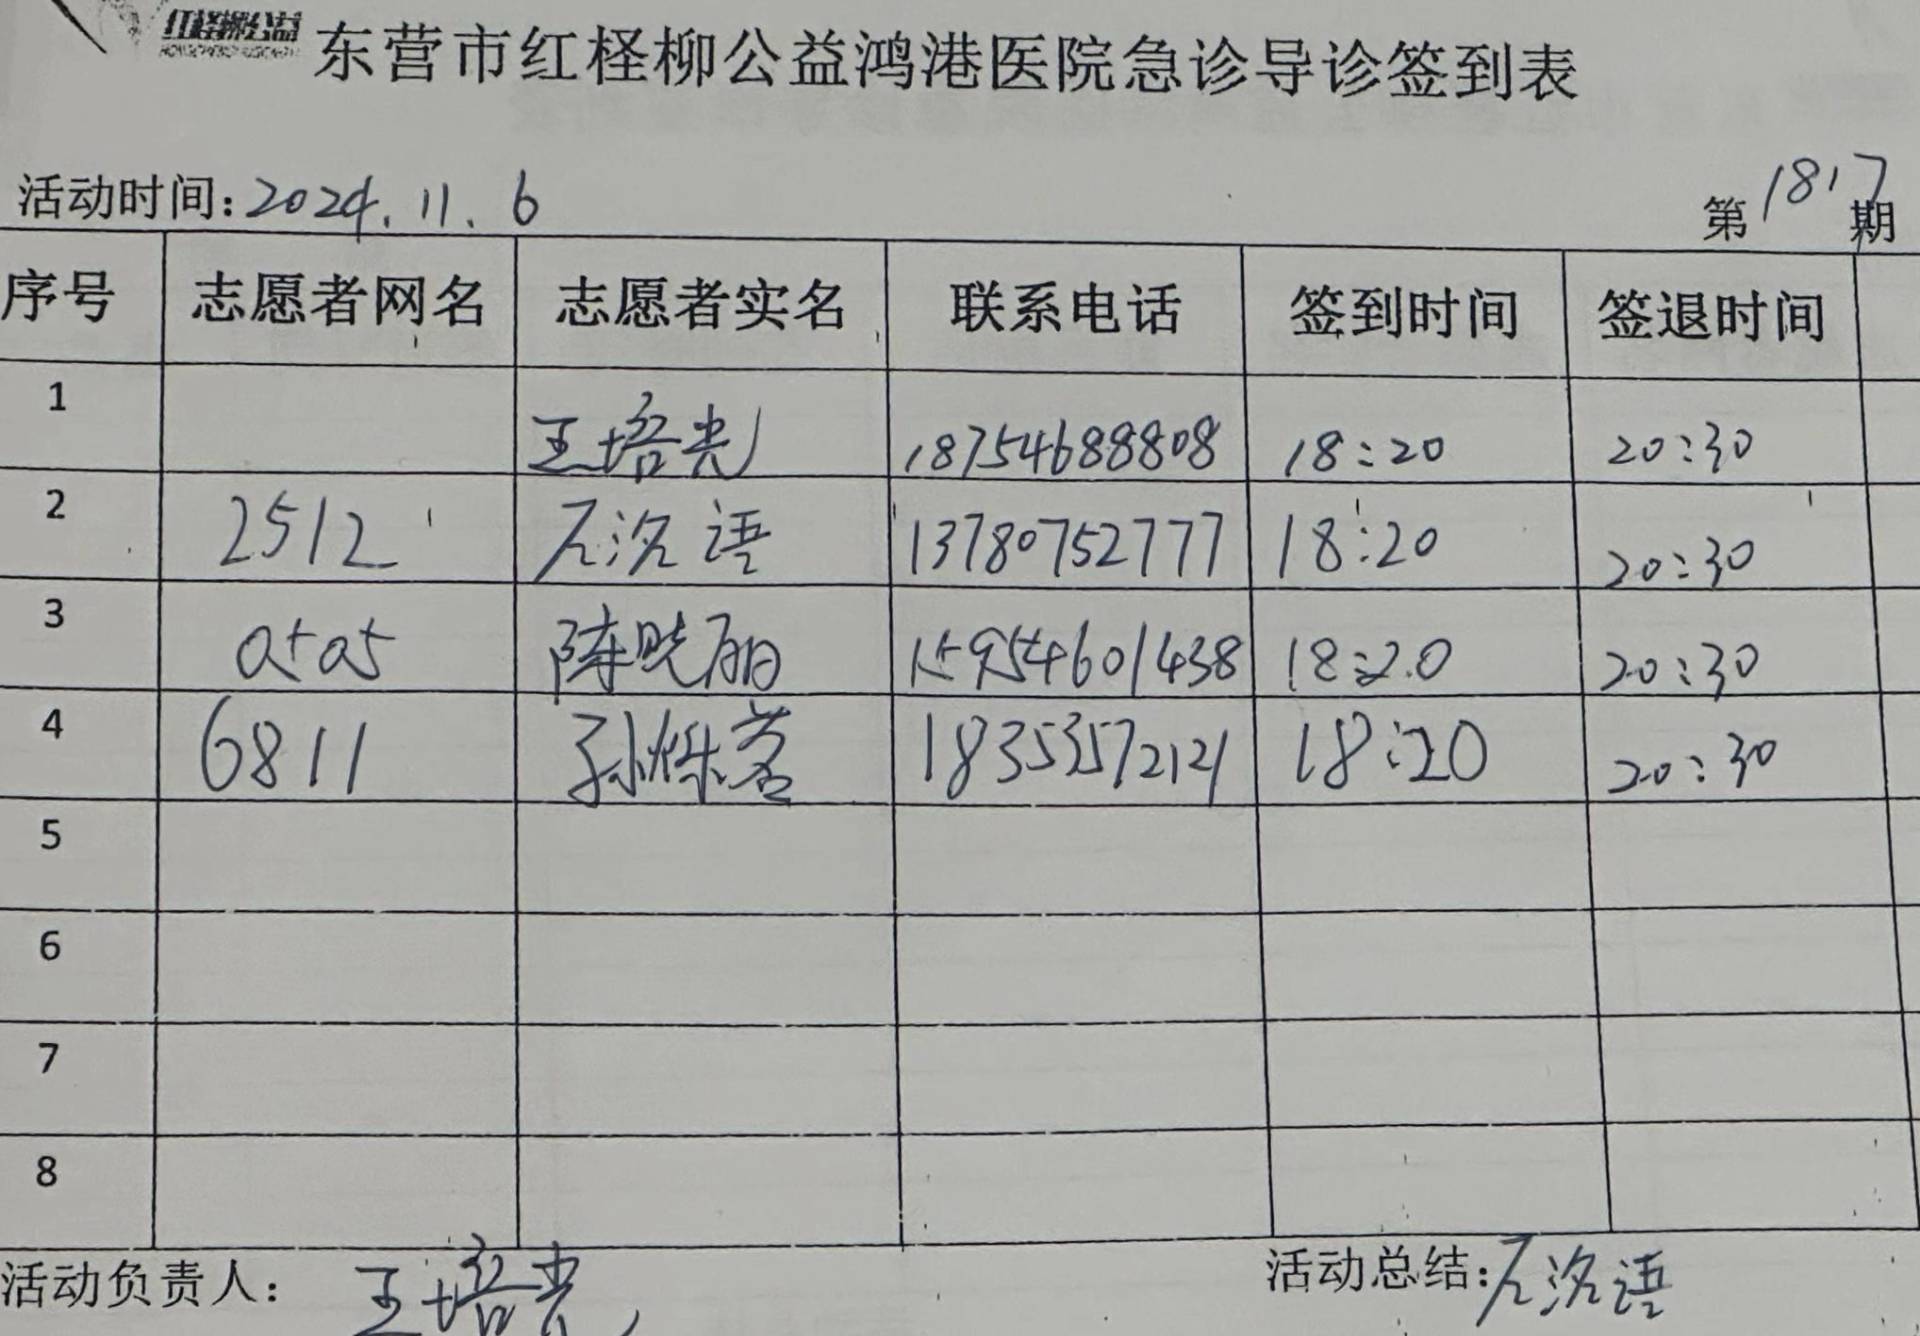 红柽柳公益
东营市红柽柳公益鸿港医院急诊导诊签到表
活动时间:2024.11.6 第1817期
序号 志愿者网名 志愿者实名 联系电话 签到时间 签退时间
1 王培光 18754688808 18:20 20:30
2 2512 石洺语 13780752777 18:20 20:30
3 0505 陈晓丽 15954601438 18:20 20:30
4 6811 孙烁茗 18353572121 18:20 20:30
5
6
7
8
活动负责人: 王培光 活动总结:石洺语